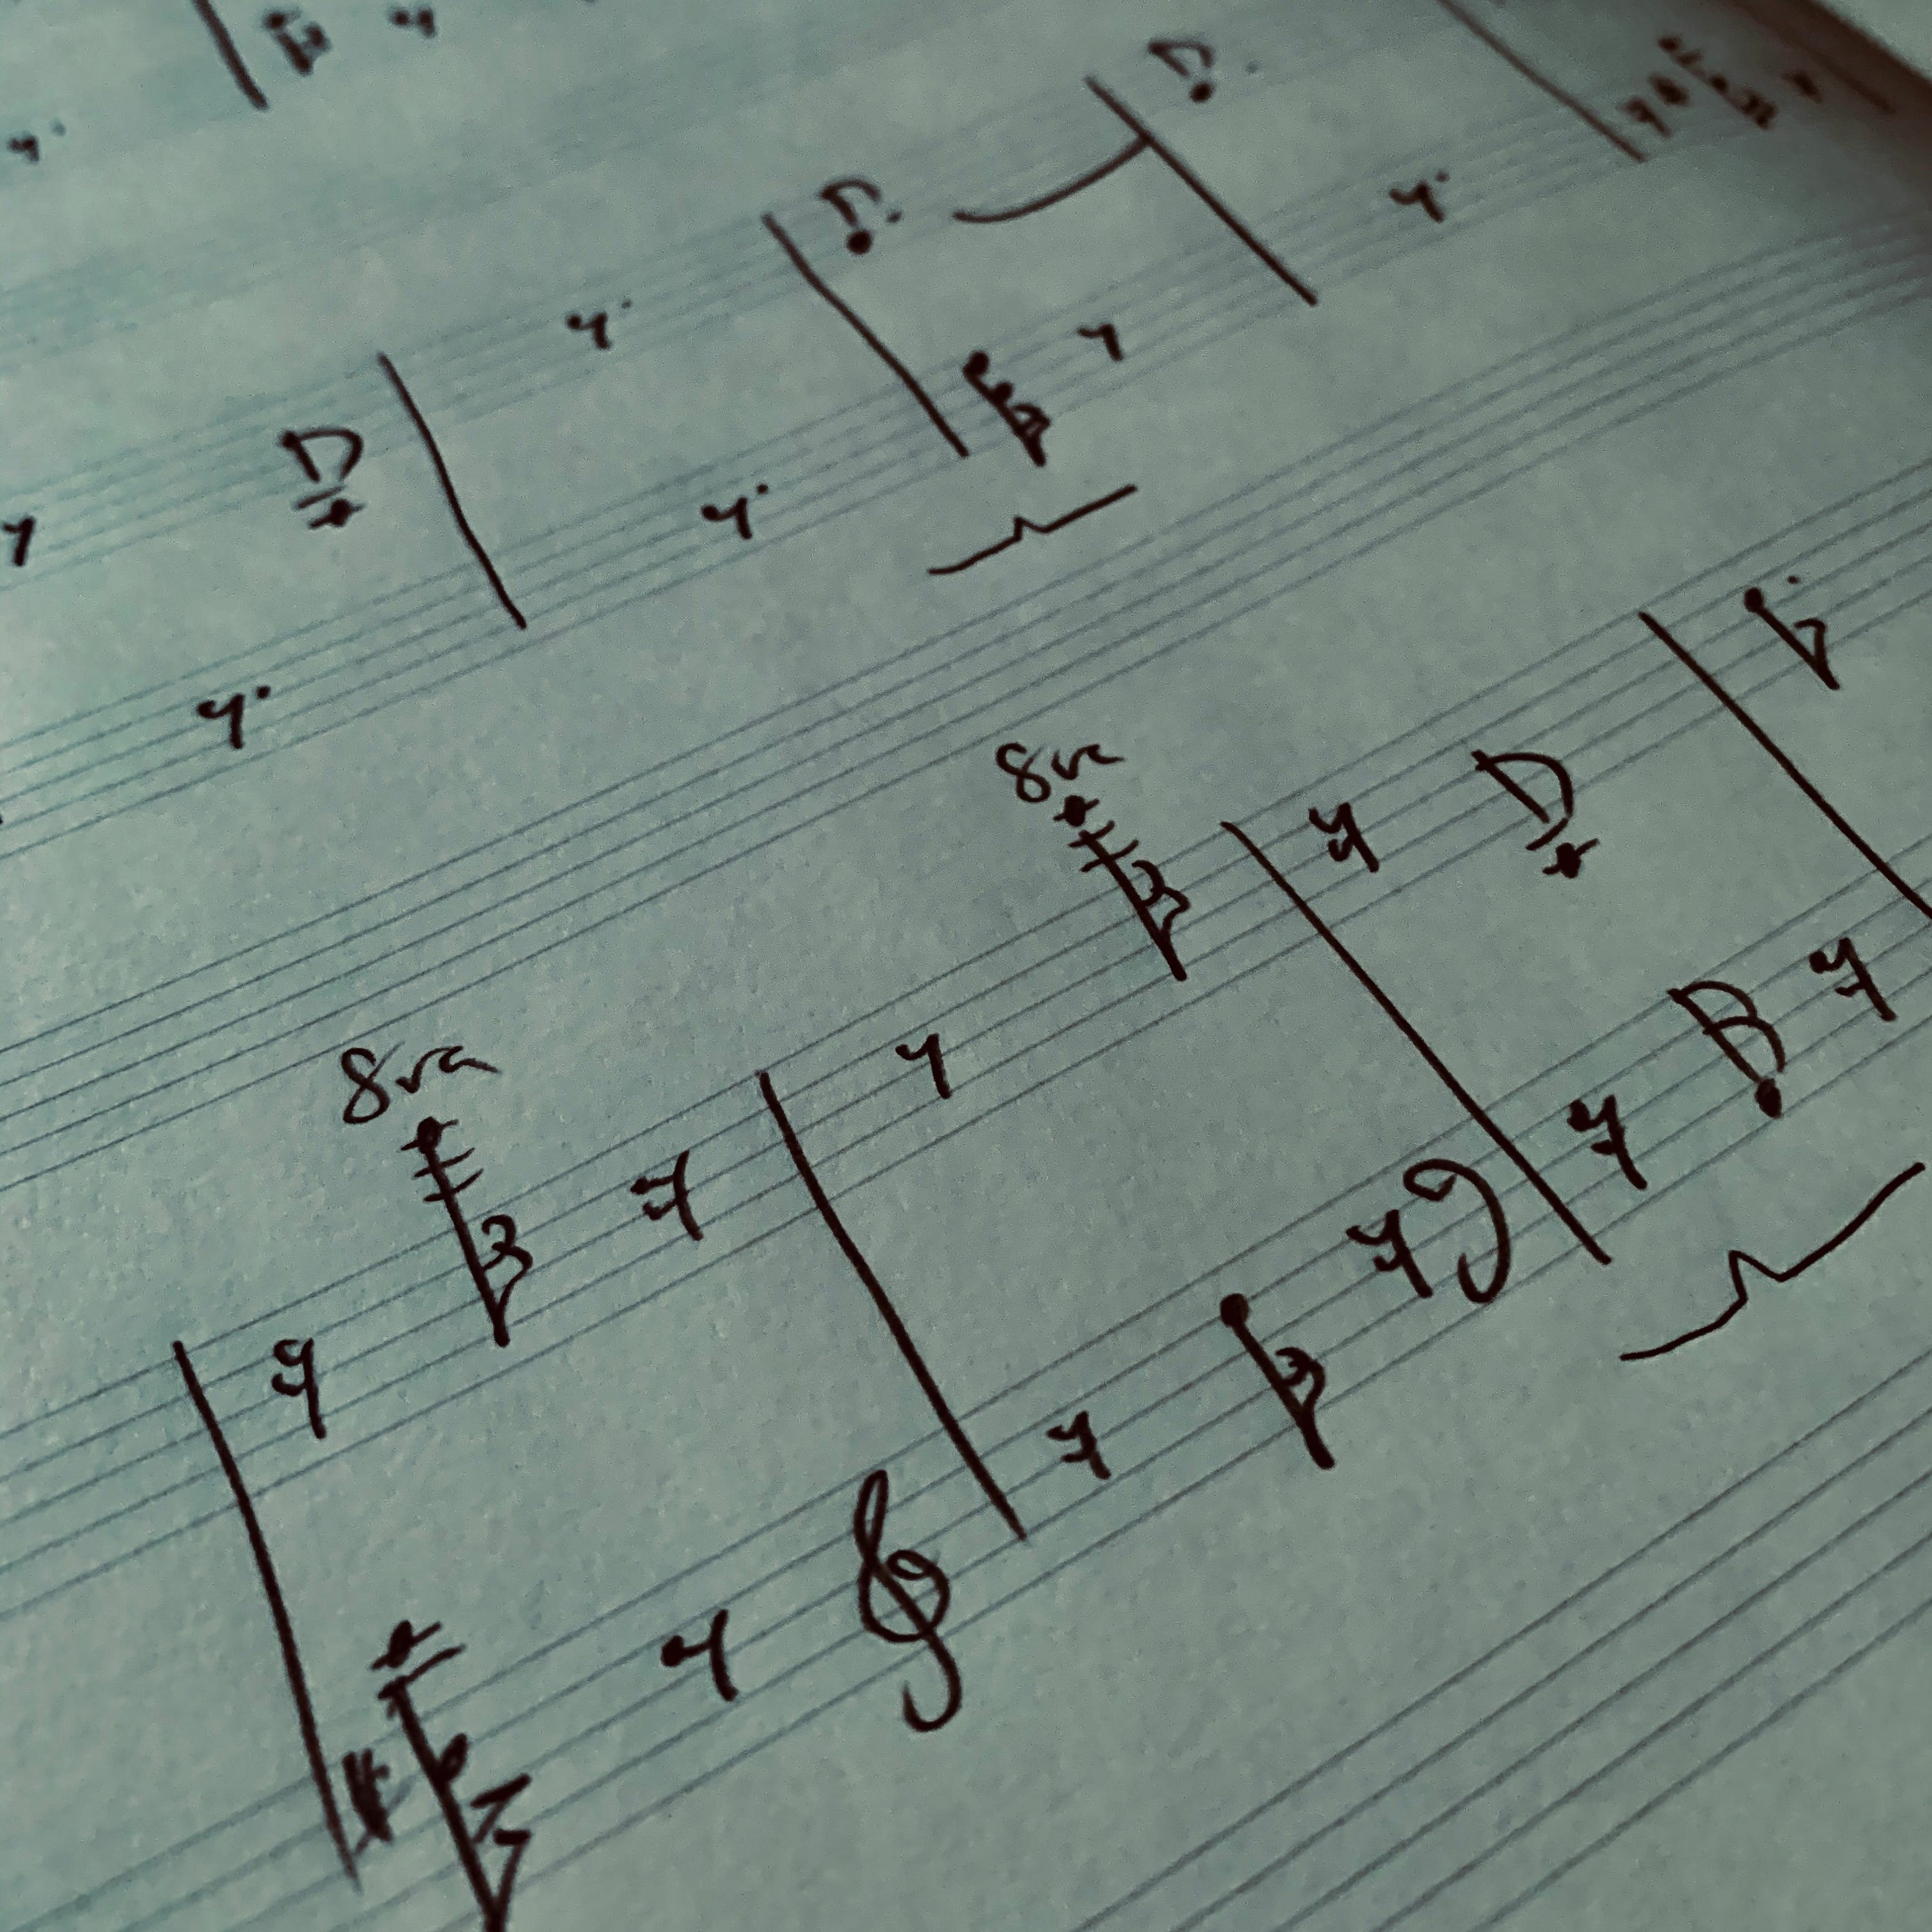 8va
8va